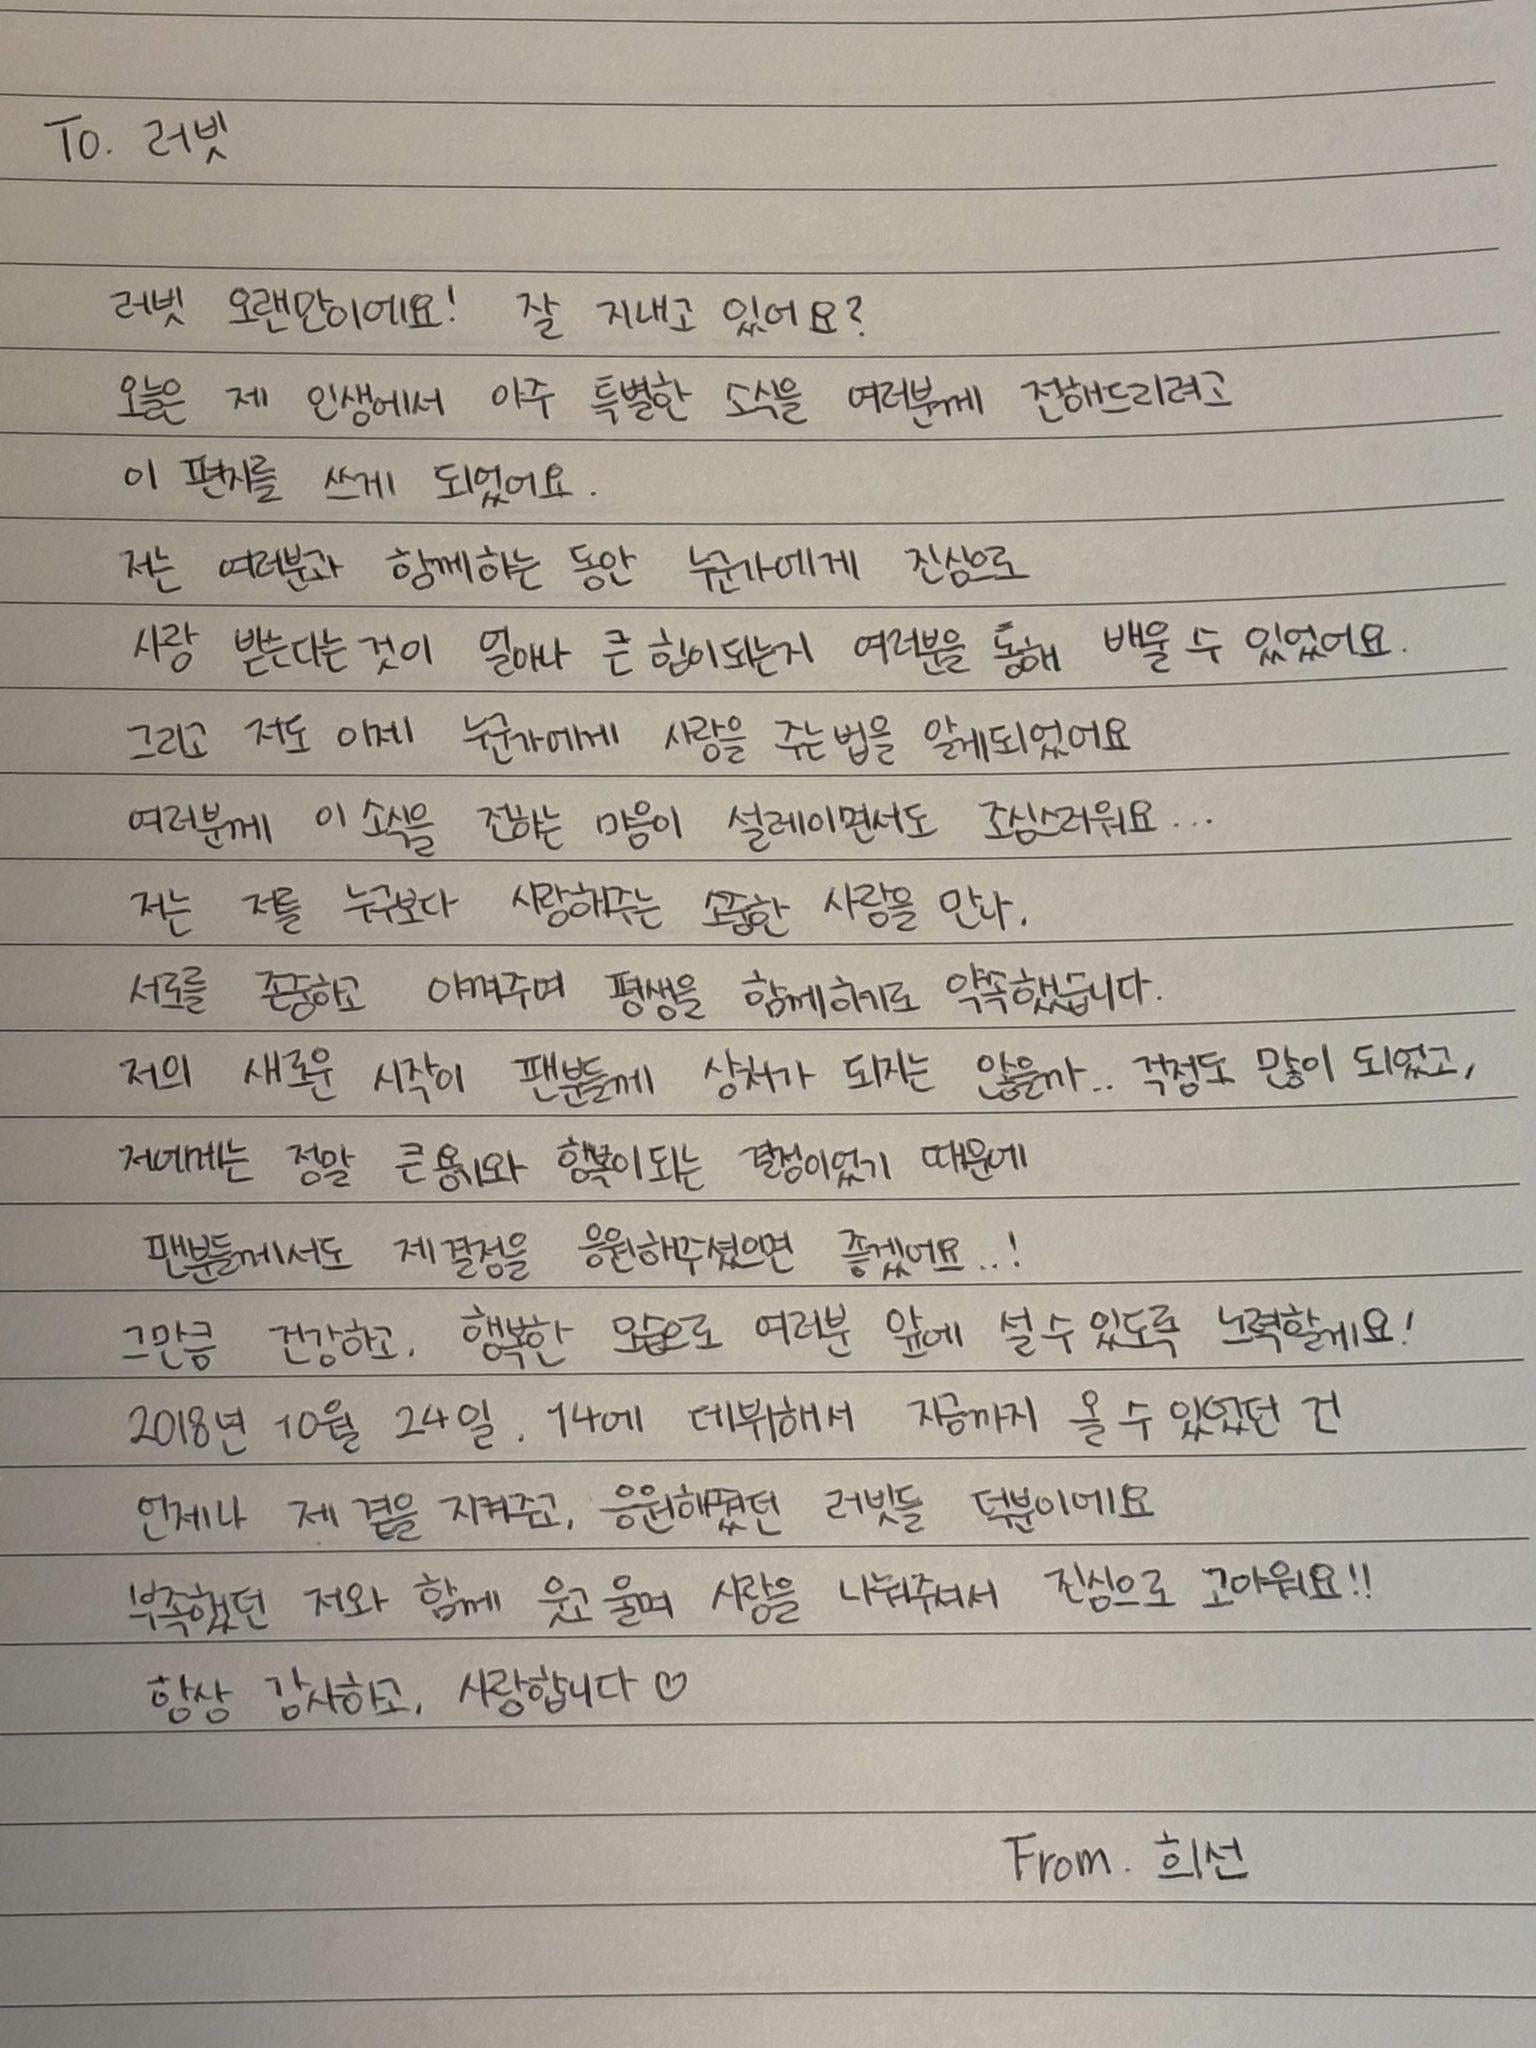 To. 러빗
러빗 오랜만이에요! 잘 지내고 있어요?
오늘은 제 인생에서 아주 특별한 소식을 여러분께 전해드리려고
이 편지를 쓰게 되었어요.
저는 여러분과 함께하는 동안 누군가에게 진심으로
사랑 받는다는 것이 얼마나 큰 힘이되는지 여러분을 통해 배울 수 있었어요.
그리고 저도 이제 누군가에게 사랑을 주는 법을 알게되었어요
여러분께 이 소식을 전하는 마음이 설레이면서도 조심스러워요...
저는 저를 누구보다 사랑해주는 소중한 사람을 만나,
서로를 존중하고 아껴주며 평생을 함께하기로 약속했습니다.
저의 새로운 시작이 팬분들께 상처가 되지는 않을까.. 걱정도 많이 되었고,
저에게는 정말 큰 용기와 행복이 되는 결정이었기 때문에
팬분들께서도 제 결정을 응원해주셨으면 좋겠어요..!
그만큼 건강하고, 행복한 모습으로 여러분 앞에 설 수 있도록 노력할게요!
2018년 10월 24일. 14에 데뷔해서 지금까지 올 수 있었던 건
언제나 제 곁을 지켜주고, 응원해줬던 러빗들 덕분이에요
부족했던 저와 함께 웃고 울며 사랑을 나눠주셔서 진심으로 고마워요!!
항상 감사하고, 사랑합니다♡
From. 희선